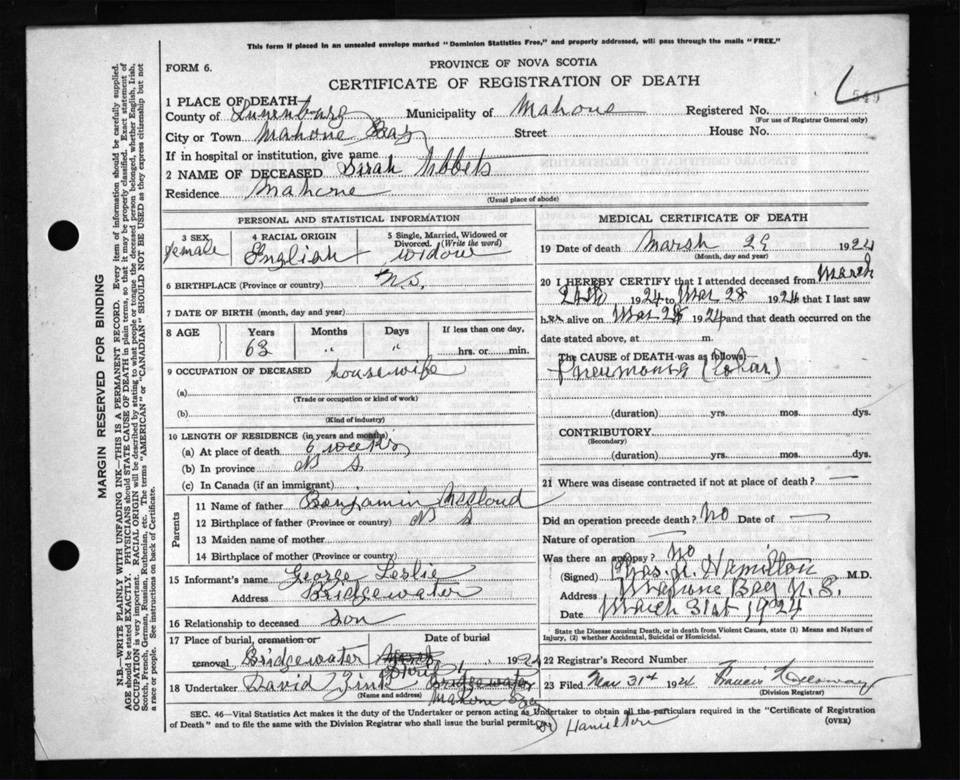 This form if placed in an unsealed envelope marked "Dominion Statistics Free," and properly addressed, will pass through the mails "FREE."
FORM 6.
PROVINCE OF NOVA SCOTIA
CERTIFICATE OF REGISTRATION OF DEATH
1 PLACE OF DEATH
County of Lunenburg Municipality of Mahone Registered No.
(For use of Registrar General only)
City or Town Mahone Bay Street House No.
If in hospital or institution, give name
2 NAME OF DECEASED Sarah
Residence Mahone
(Usual place of abode)
PERSONAL AND STATISTICAL INFORMATION
3 SEX female
4 RACIAL ORIGIN English
5 Single, Married, Widowed or Divorced. (Write the word) Widow
6 BIRTHPLACE (Province or country) N.S.
7 DATE OF BIRTH (month, day and year)
8 AGE Years Months Days If less than one day,
63 " " hrs. or min.
9 OCCUPATION OF DECEASED housewife
(a)
(Trade or occupation or kind of work)
(b)
(Kind of industry)
10 LENGTH OF RESIDENCE (in years and months)
(a) At place of death weeks
(b) In province N S
(c) In Canada (if an immigrant)
Parents
11 Name of father Benjamin
12 Birthplace of father (Province or country) N S
13 Maiden name of mother
14 Birthplace of mother (Province or country)
15 Informant's name George Leslie
Address Bridgewater
16 Relationship to deceased Son
17 Place of burial, cremation or Date of burial
removal Bridgewater 1924
18 Undertaker David Zink Bridgewater
(Name and address) Mahone Bay
MEDICAL CERTIFICATE OF DEATH
19 Date of death Marsh 29 1924
(Month, day and year)
20 I HEREBY CERTIFY that I attended deceased from March
24th 1924 to Mar 28 1924 that I last saw
her alive on Mar 28 1924 and that death occurred on the
date stated above, at m.
The CAUSE of DEATH was as follows:
Pneumonia (Lobar)
(duration) yrs. mos. dys.
CONTRIBUTORY
(Secondary)
(duration) yrs. mos. dys.
21 Where was disease contracted if not at place of death? —
Did an operation precede death? No Date of —
Nature of operation —
Was there an autopsy? No
(Signed) Hamilton M.D.
Address Mahone Bay N.S.
Date March 31st 1924
* State the Disease causing Death, or in death from Violent Causes, state (1) Means and Nature of Injury, (2) whether Accidental, Suicidal or Homicidal.
22 Registrar's Record Number
23 Filed Mar 31st 1924 Francis
(Division Registrar)
SEC. 46—Vital Statistics Act makes it the duty of the Undertaker or person acting as Undertaker to obtain all the particulars required in the "Certificate of Registration
of Death" and to file the same with the Division Registrar who shall issue the burial permit.
(OVER)
Dr Hamilton
MARGIN RESERVED FOR BINDING
N.B.—WRITE PLAINLY WITH UNFADING INK—THIS IS A PERMANENT RECORD. Every item of information should be carefully supplied.
AGE should be stated EXACTLY. PHYSICIANS should STATE CAUSE OF DEATH in plain terms, so that it may be properly classified. Exact statement of
OCCUPATION is very important. RACIAL ORIGIN will be described by stating to what people or tongue the deceased person belonged, whether English, Irish,
Scotch, French, German, Russian, Ruthenian, etc. The terms "AMERICAN" or "CANADIAN" SHOULD NOT BE USED as they express citizenship but not
a race or people. See instructions on back of Certificate.